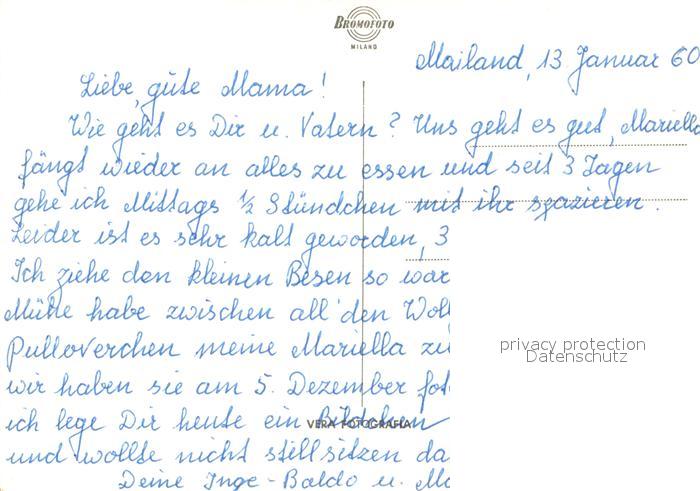 BROMOFOTO
MILANO
Mailand, 13 Januar 60
Liebe, gute Mama!
Wie geht es Dir u. Vatern? Uns geht es gut, Mariella
fängt wieder an alles zu essen und seit 3 Tagen
gehe ich Mittags ½ Stündchen mit ihr spazieren.
Leider ist es sehr kalt geworden, 3
Ich ziehe den kleinen Besen so war
Mühe habe zwischen all' den Woll
Pulloverchen meine Mariella zu
privacy protection
Datenschutz
wir haben sie am 5. Dezember fot
ich lege Dir heute ein Bildchen
VERA FOTOGRAFIA
und wollte nicht stillsitzen da
Deine Inge-Baldo u. Ma